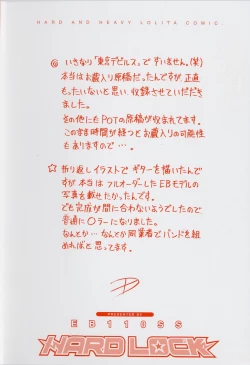 HARD AND HEAVY LOLITA COMIC
◎ いきなり「東京デビルス」ですいません。(笑)
本当はお蔵入り原稿だったんですが、正直
もったいないと思い、収録させていただき
ました。
その他にもPOTの原稿が収まれてます。
このまま時間が経つとお蔵入りの可能性
もありますので…。
☆ 折り返しイラストでギターを描いたんで
すが本当はフルオーダーしたEBモデルの
写真を載せたかったんです。
でも完成が間に合わないようでしたので
普通に〇ラーになりました。
なんとか…なんとか同業者でバンドを組
めればと思ってます。
PRESENTED BY
EB110SS
HARD LOCK